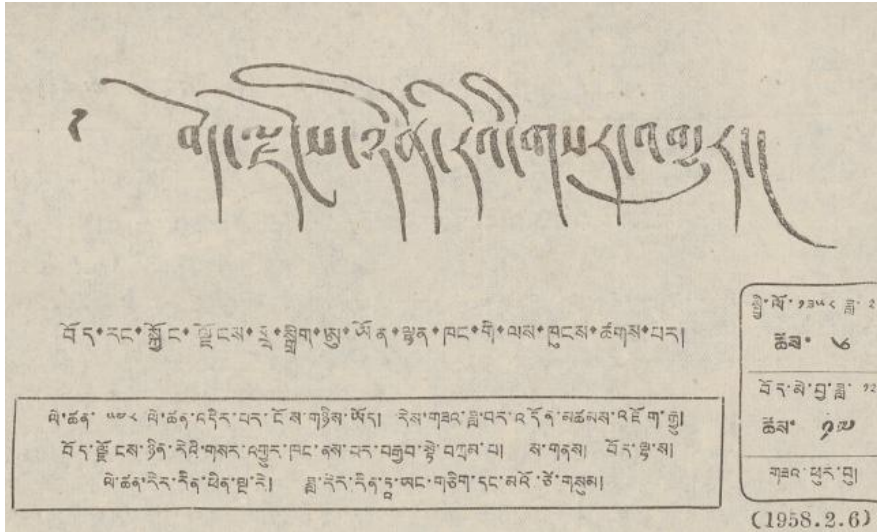 བོད་ལྗོངས་ཉིན་རེའི་གསར་འགྱུར།།
བོད་རང་སྐྱོང་ལྗོངས་གྲ་སྒྲིག་ཨུ་ཡོན་ལྷན་ཁང་གི་ལས་ཁུངས་ཚགས་པར།
ལེ་ཚན་ ༥༧༨ ལེ་ཚན་འདིར་པར་ངོས་གཉིས་ཡོད། རེས་གཟའ་ཟླ་བར་འདོན་མཚམས་འཇོག་རྒྱུ།
བོད་ལྗོངས་ཉིན་རེའི་གསར་འགྱུར་ཁང་ནས་པར་བརྒྱབ་སྟེ་བཀྲམ་པ། ས་གནས། བོད་ལྷ་ས།
ལེ་ཚན་རེར་རིན་ཕིན་ལྔ་རེ། ཟླ་རེར་རིན་ཏྭ་ཡང་གཅིག་དང་མའོ་ཙེ་གསུམ།
སྤྱི་ལོ་༡༩༥༨ ཟླ་ ༢
ཚེས་ ༦
བོད་མེ་བྱ་ཟླ་ ༡༢
ཚེས་ ༡༧
གཟའ་ཕུར་བུ།
(1958.2.6)